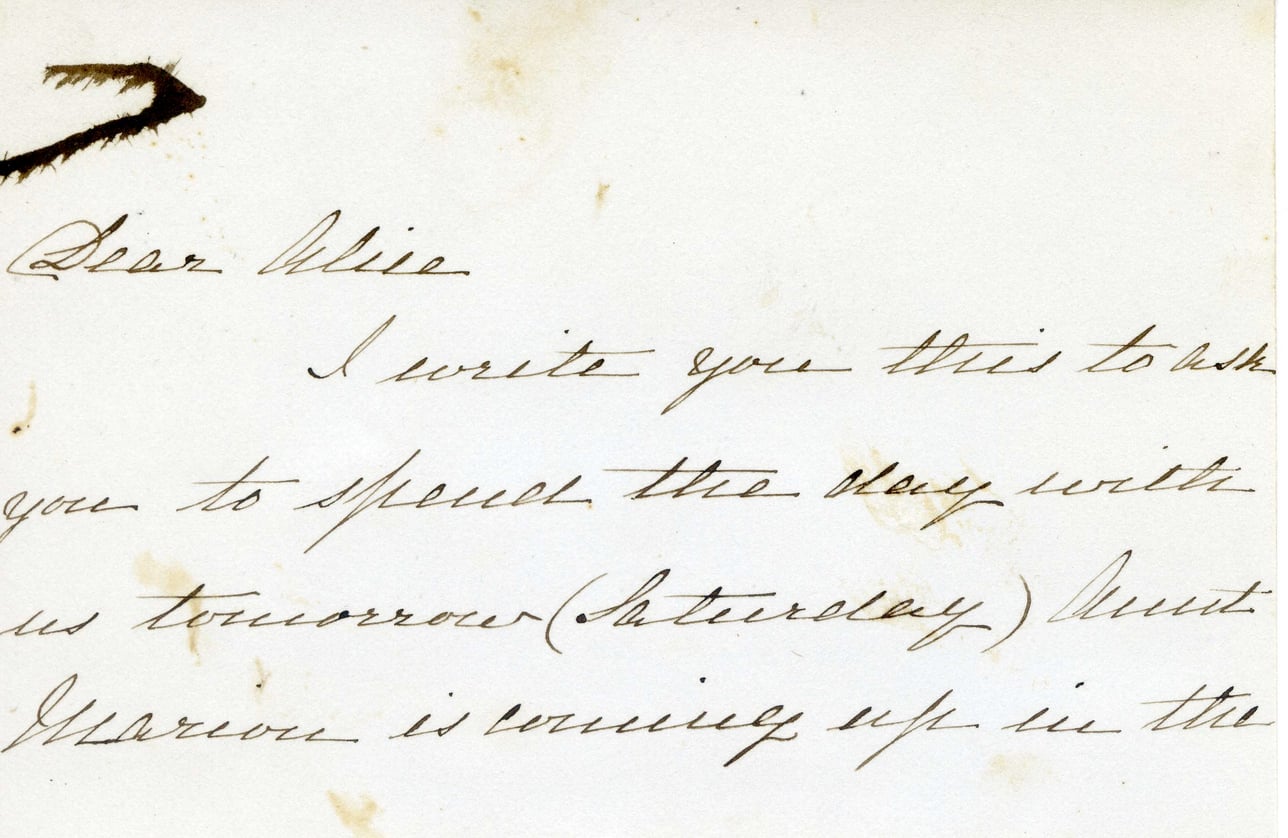 Dear Alice
I write you this to ask
you to spend the day with
us tomorrow (Saturday) Aunt
Marion is coming up in the